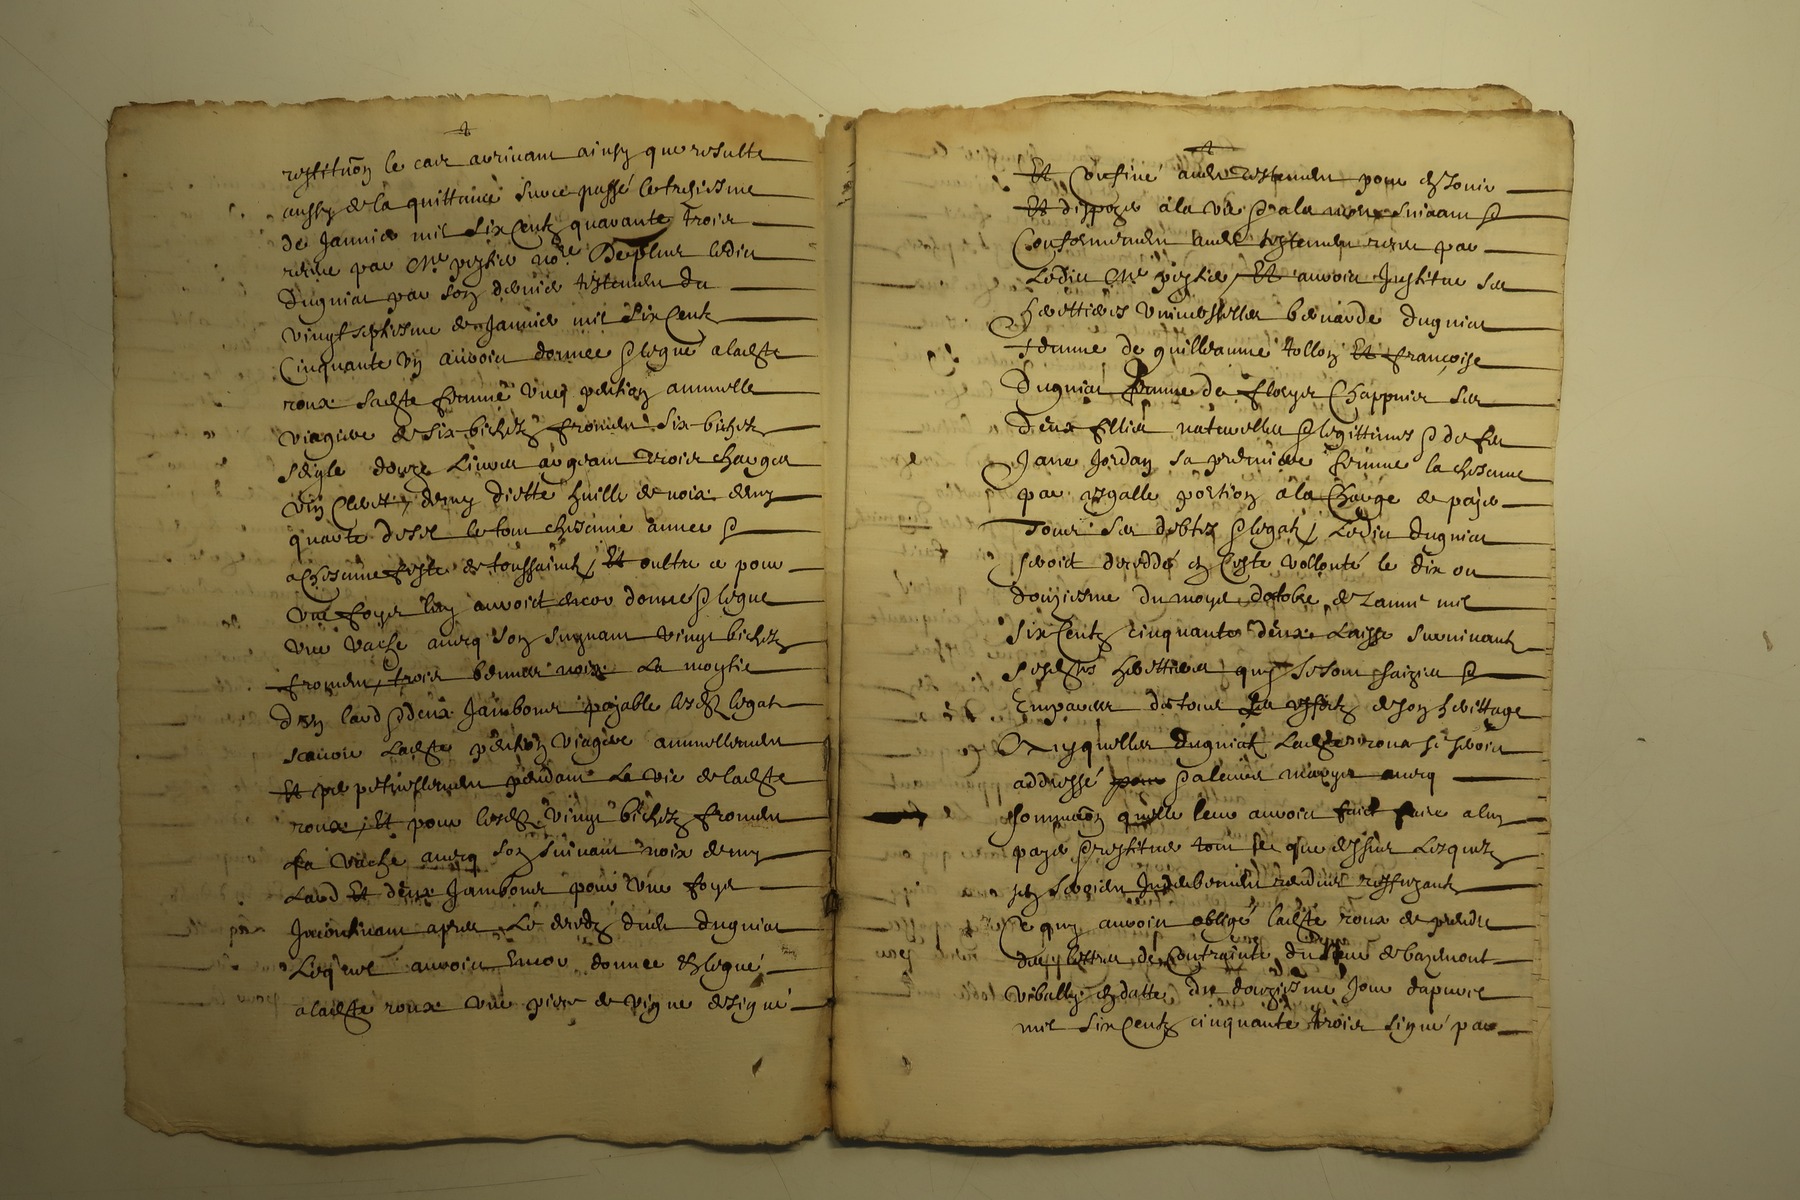 restituõn le cas arrivant ainsy que resulte
aussy de la quittance sur ce passé le treiziesme
de Janvier mil six Centz quarante trois
receue par Me pestier nore De plus ledict
Dugniat par son dernier testement du
vingt septiesme de Janvier mil six Centz
Cinquante un auroict donnee & legué a ladte
roux sadte femme une pention annuelle
viagere de six bichetz froment six bichetz
seigle douze Livres argeant trois charges
vin Cleret, demy diette huille de noix demy
quarte de sel le tout chescune annee &
a Chescune feste de toussainctz, Et oultre ce pour
une foys luy auroict encor donné & legué
une vache avecq son suyvant vingt bichetz
froment, trois bennes noix La moytié
d'un lard & deux Jambons payable lesdz legatz
scavoir Ladte pention viagere annuellement
Et perpetuellement pendant La vie de ladte
roux, Et pour lesdz vingt bichetz froment
La vache avecq son suivant noix demy
Lard Et deux Jambons pour une foys
Incontinant apres Le decedz dudt dugniat
Lequel auroict Encor donnee & legué
a ladte roux une piece de vigne designé
Et Confiné audt testement pour en Jouir
Et disposer a la vie & a la mort suivant &
Conformement audt testement receu par
Ledict Me pestier, Et auroict Institue ses
herittieres universelles bernarde dugniat
femme de guilleaume tollon Et françoise
Dugniat femme de Floris Chappuis ses
deux fillies naturelles & legittimes & de feu
Jane Jordan sa premiere femme la chescune
par esgalle portion a la Charge de payer
Tous ses debtes & legatz, Ledict dugniat
seroict deceddé en Ceste vollonté le dix ou
douziesme du moys doctobre de L'anné mil
six Centz cinquante deux Laisse survivantz
sesdtes herittieres quy se sont saizies &
Emparees de tous Les effectz de son herittage
Auxquelles dugniat Ladte roux se seroict
addressé & a leurs marys avecq
sommaõn quelle leur auroict faict faire a luy
payer & restituer tout ce que dessus Lesquelz
en seroient Indeubement rendus reffuzantz
Ce quy auroict obligé ladte roux de prendre
des lettres de Contrainte du sieur de bazemont
vibally en datte du douziesme Jour dapvril
mil six Centz cinquante trois signé par